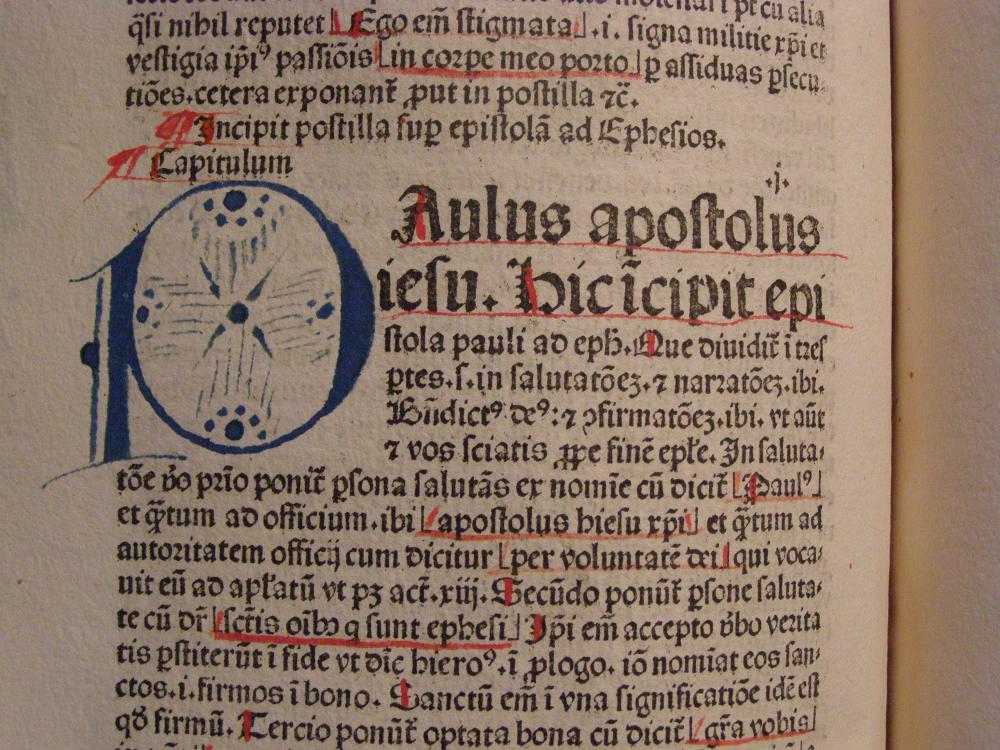 q̃si nihil reputet Ego em̃ stigmata .i. signa militie xp̄i et
vestigia ip̄iꝰ passiōis in corpe meo porto ꝑ assiduas ꝑsecu-
tiões. cetera exponant̃ ꝓut in postilla ⁊c̃.
¶ Incipit postilla suꝑ epistolā ad Ephesios.
¶ Capitulum .j.
PAulus apostolus
iesu. Hic īcipit epi
stola pauli ad eph. Que diuidit̃ ī tres
ꝑtes .s. in salutatōeꝫ. ⁊ narratōeꝫ. ibi.
Bn̄dictꝰ deꝰ: ⁊ ꝯfirmatōeꝫ. ibi. vt aūt
⁊ vos sciatis ꝓpe finē ep̄le. In saluta-
tōe v̄o pr̄io ponit̃ ꝑsona salutās ex nomīe cū dicit̃ Paulꝰ
et q̄tum ad officium. ibi apostolus hiesu xp̄i et q̄tum ad
autoritatem officij cum dicitur per voluntatē dei qui voca-
uit eū ad apl̄atū vt pꝫ act̃. xiij. Secūdo ponūt̃ ꝑsone saluta-
te cū dr̄ sctīs oībꝰ q sunt ephesi Ip̄i em̃ accepto v̄bo verita
tis ꝑstiterūt ī fide vt dīc hieroꝰ. ī ꝓlogo. iō nomīat eos san-
ctos. i. firmos ī bono. Sanctū em̃ ī vna significatiōe idē est
qd̄ firmū. Tercio ponūt̃ optata bona cū dicit̃ gr̄a vobis